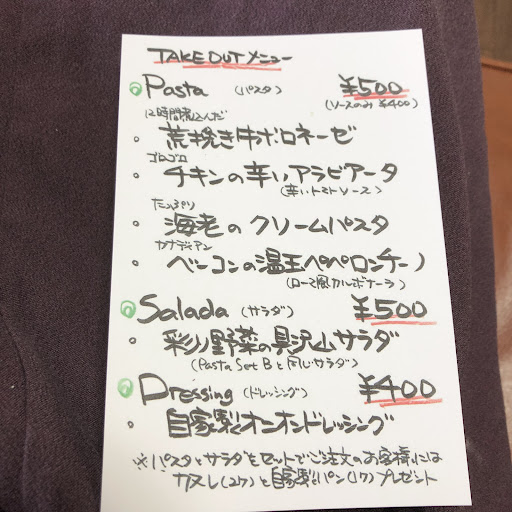 TAKE OUT メニュー
Pasta (パスタ) ¥500
(ソースのみ ¥400)
12時間煮込んだ
・荒挽き牛ボロネーゼ
ゴロゴロ
・チキンの辛いアラビアータ
(辛いトマトソース)
たっぷり
・海老のクリームパスタ
カナディアン
・ベーコンの温玉ペペロンチーノ
(ローマ風カルボナーラ)
Salada (サラダ) ¥500
・彩り野菜の具沢山サラダ
(Pasta Set Bと同じサラダ)
Dressing (ドレッシング) ¥400
・自家製オニオンドレッシング
※パスタとサラダをセットでご注文のお客様には
カヌレ(2ケ)と自家製パン(1ケ)プレゼント